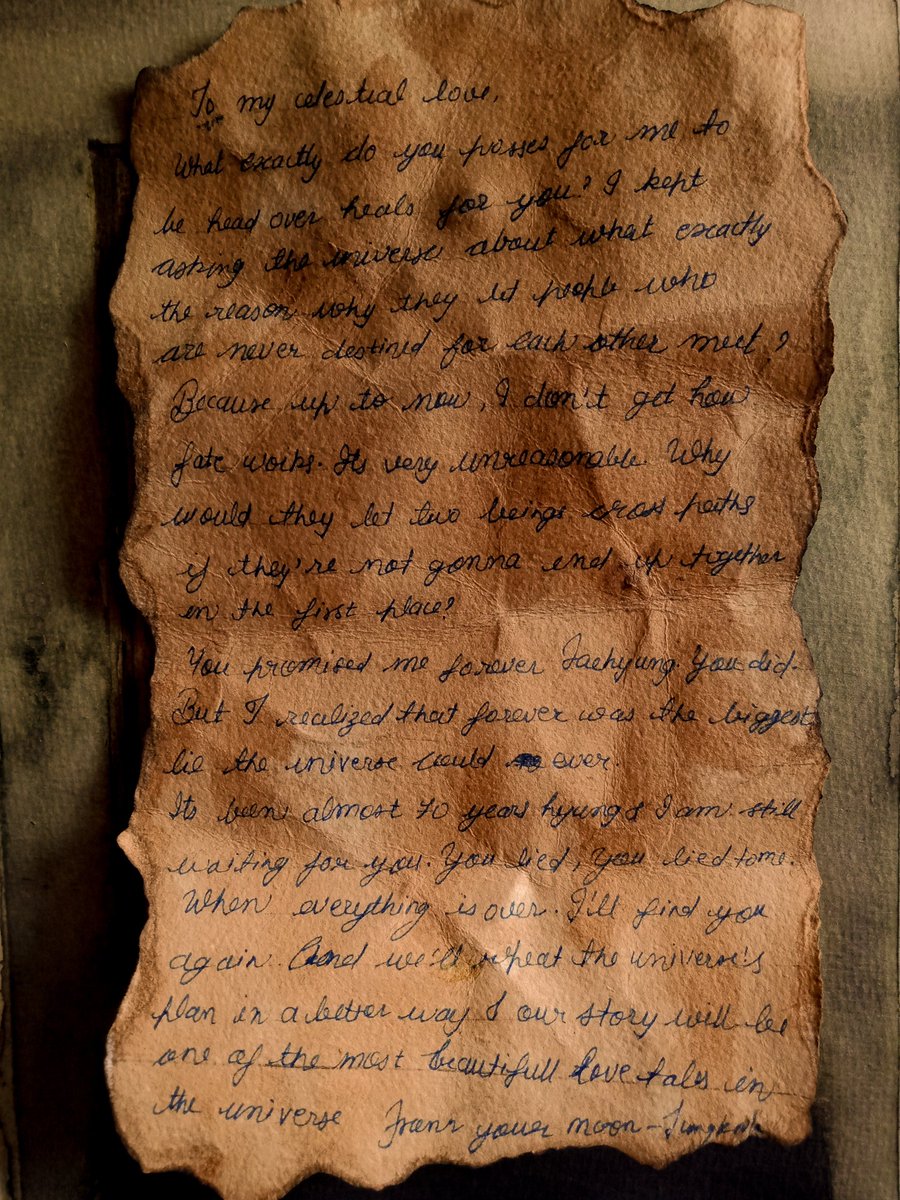 To my celestial love,
What exactly do you posses for me to
be head over heals for you? I kept
asking the universe about what exactly
the reason why they let people who
are never destined for each other meet?
Because up to now, I don't get how
fate works. Its very unreasonable. Why
would they let two beings cross paths
if they're not gonna end up together
in the first place?
You promised me forever Taehyung. You did.
But I realized that forever was the biggest
lie the universe could ever.
Its been almost 70 years hyung & I am still
waiting for you. You lied, you lied to me.
When everything is over. I'll find you
again. And we'll repeat the universe's
plan in a better way & our story will be
one of the most beautifull love tales in
the universe From your moon - Jungkook